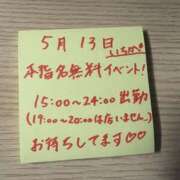 5月13日
いちか♡
本指名無料イベント!
15:00~24:00出勤
(19:00~20:00は店いません。)
お待ちしてます♡♡